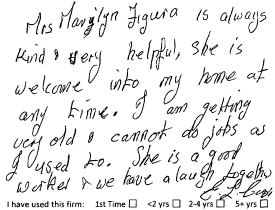 Mrs Marylyn Figura is always
kind & very helpful, she is
welcome into my home at
any time. I am getting
very old & cannot do jobs as
I used to. She is a good
worker & we have a laugh together
I have used this firm: 1st Time <2 yrs 2-4 yrs 5+ yrs